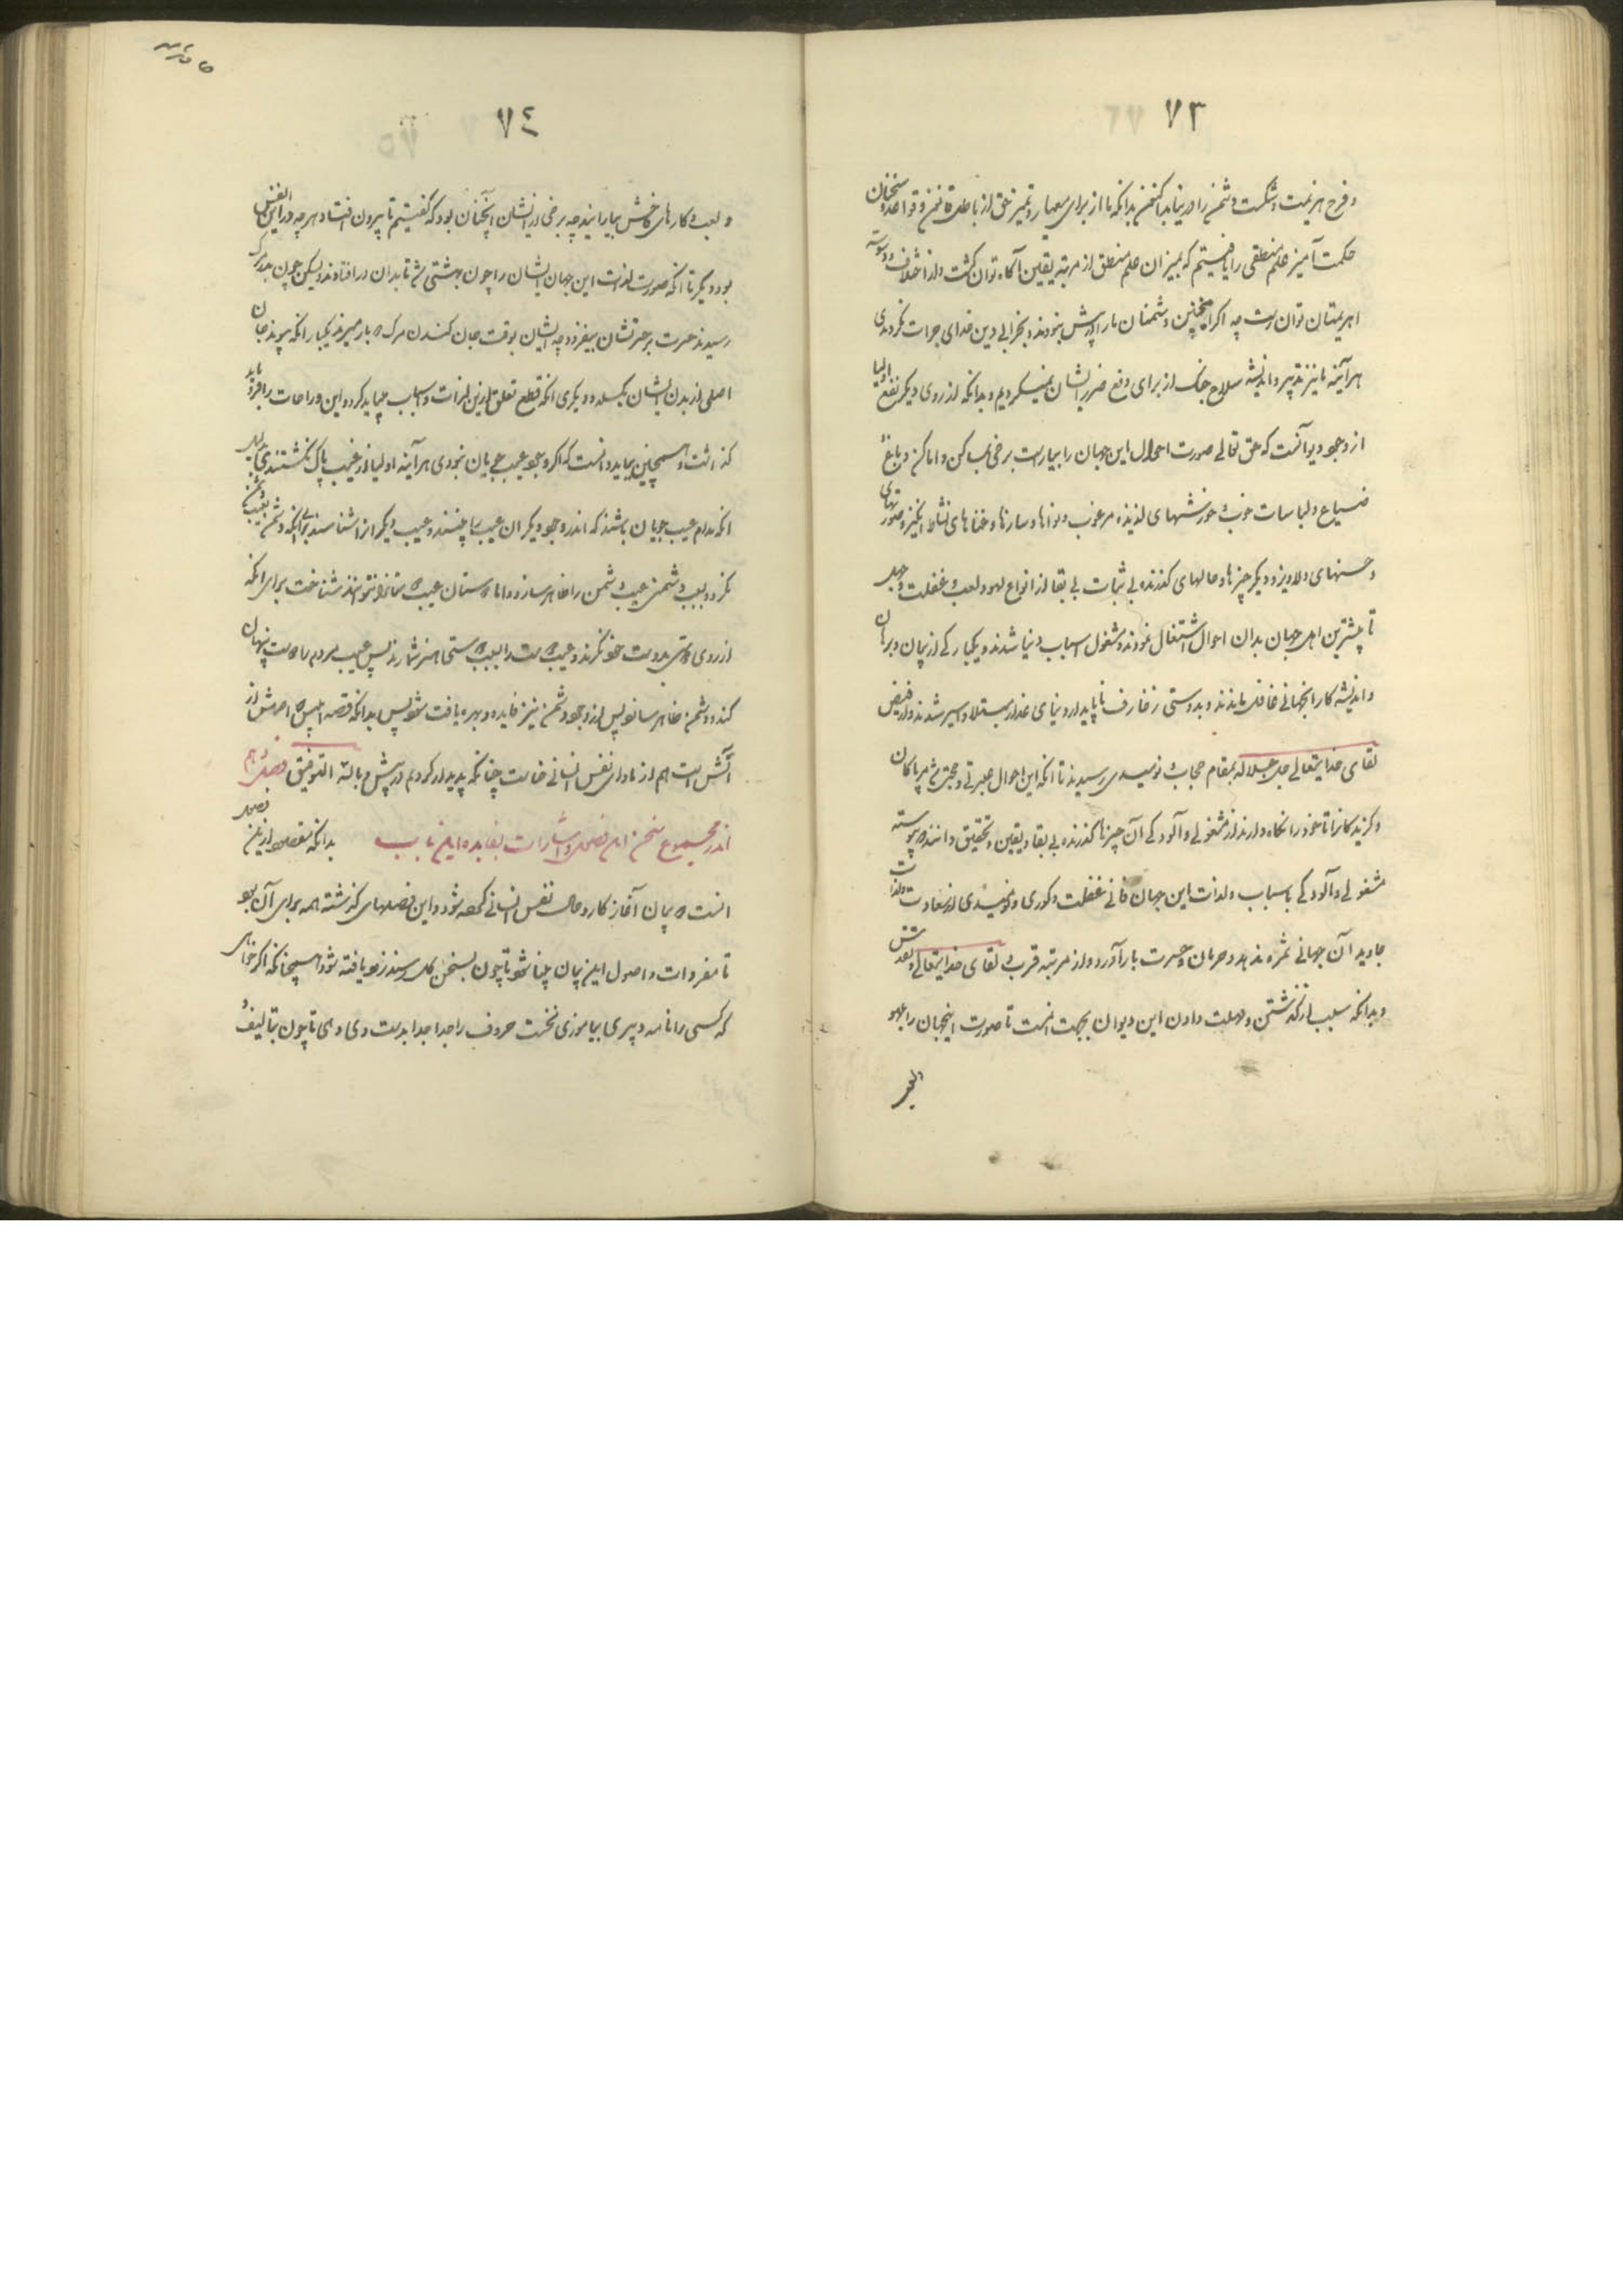 ٧٣
و فرح هزیمت و شکست دشمن را در نیابد اکنون بدانکه ما از برای معیار و تمیز حق از باطل قانون و قواعد و سخنان
حکمت آمیز علم منطقی را یافتیم که بمیزان علم منطق از مرتبه یقین آگاه توان گشت و از اختلاف و وسوسه
اهریمنان توان رست چه اگر اینچنین دشمنان ما را در پیش نبودند و بخرابی دین خدای جرات نکردندی
هر آینه ما نیز تدبیر و اندیشه سلاح جنگ از برای دفع ضرر ایشان نمیکردیم و بدانکه از روی دیگر نفع اولیا
از وجود دیو آنست که حق تعالی صورت احوال این جهان را بیاراست برخی بمساکن و اماکن و باغ و
ضیاع و لباسات خوب و خورشهای لذیذه مرغوب و نواها و سازها و غناهای نشاط انگیز و صورتهای
و حسنهای دلاویز و دیگر چیزها و حالهای گذرنده بی ثبات بی بقا از انواع لهو و لعب و غفلت و جهل
تا بیشترین اهل جهان بدان احوال اشتغال نمودند و مشغول اسباب دنیا شدند و یکبارگی از پیمان و برهان
و اندیشه کار آنجهانی غافل ماندند و بدوستی زخارف ناپایدار دنیای غدار مبتلا و اسیر شدند و از فیض
لقای خدایتعالی جل جلاله بمقام حجاب و نومیدی رسیدند تا آنکه این احوال عبرتی و حجتی شد مر پاکان
و گزیدگانرا تا خود را نگاه دارند از مشغولی و آلودگی آن چیزهای گذرنده بی بقا و یقین و تحقیق دانند که پیوسته
مشغولی و آلودگی باسباب و لذات این جهان فانی غفلت و کوری و نومیدی از سعادت و لذات
جاوید آن جهانی ثمره ندهد و حرمان و حسرت بار آورد و از مرتبه قرب و لقای خدایتعالی
و بدانکه سبب از گذشتن و مهلت دادن این دیوان بجهت آنست تا صورت اینجهان را بلهو
٧٤
و لعب و کارهای ناخوش بیارایند چه برخی از ایشان آنچنان بود که گفتیم تا بیرون افتاد و هر چه در این نفس
بود دیگر تا آنکه صورت لذات این جهان ایشان را چون بهشتی شد تا بدان در افتادند و لیکن چون بمرگ
رسیدند حسرت بر حسرتشان بیفزود چه ایشان بوقت جان کندن مرگ دو بار میرند یکبار آنکه پیوند جان
اصلی از بدن ایشان بگسلد و دیگری آنکه قطع تعلق از این لذات و اسباب میباید کرد و این راحات را فرو باید
گذاشت و همچنین بباید دانست که اگر وجود عیب جویان نبودی هر آینه اولیا از عیب پاک نگشتندی
آنکه مدام عیب جویان باشند که اندر وجود دیگران عیب بینند و عیب دیگرانرا شناسند برای آنکه دشمن بعیب
نگرد و بسبب دشمنی عیب دشمن را ظاهر سازد و اما دوستان عیب دوستانرا نتوانند شناخت برای آنکه
از روی دوستی بدوست خود نگرند و عیب دوست را بسبب دوستی هنر شمارند پس عیب مردم را دوست پنهان
کند و دشمن ظاهر سازد پس از وجود دشمن نیز فایده و بهره یافت شود پس بدانکه قصه ابلیس که اصلش از
آتش است هم از ماوای نفس انسانی خاست چنانکه پدیدار کردیم در پیش و بالله التوفیق فصل دهم
اندر مجموع سخن این فصل و اشارات بفایده این باب بدانکه مقصود از این
آنست که بیان آغاز کار و حال نفس انسانی گفته شود و این فصلهای گذشته همه برای آن بود
تا مفردات و اصول این بیان پیدا شود تا چون بسخن کلی رسند زود یافته شود همچنانکه اگر خواهی
که کسی را نامه و دبیری بیاموزی نخست حروف را جدا جدا بدست وی دهی تا چون بتالیف